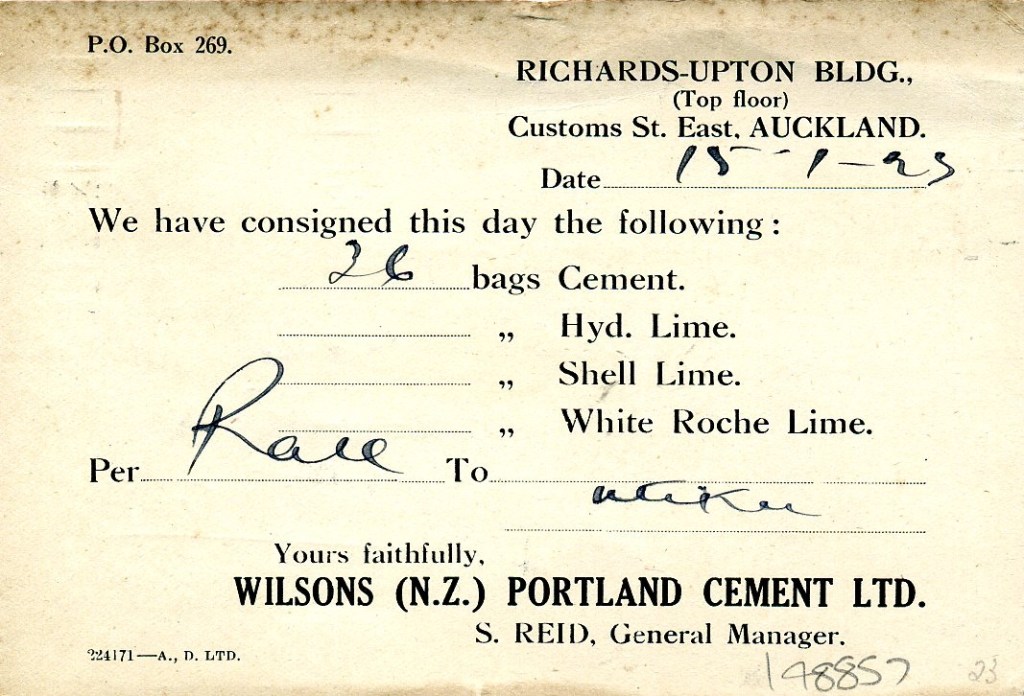 P.O. Box 269.
RICHARDS-UPTON BLDG.,
(Top floor)
Customs St. East, AUCKLAND.
Date 15-1-
We have consigned this day the following:
26 bags Cement.
„ Hyd. Lime.
„ Shell Lime.
„ White Roche Lime.
Per Rail To
Yours faithfully,
WILSONS (N.Z.) PORTLAND CEMENT LTD.
S. REID, General Manager.
224171—A., D. LTD.
148857
23